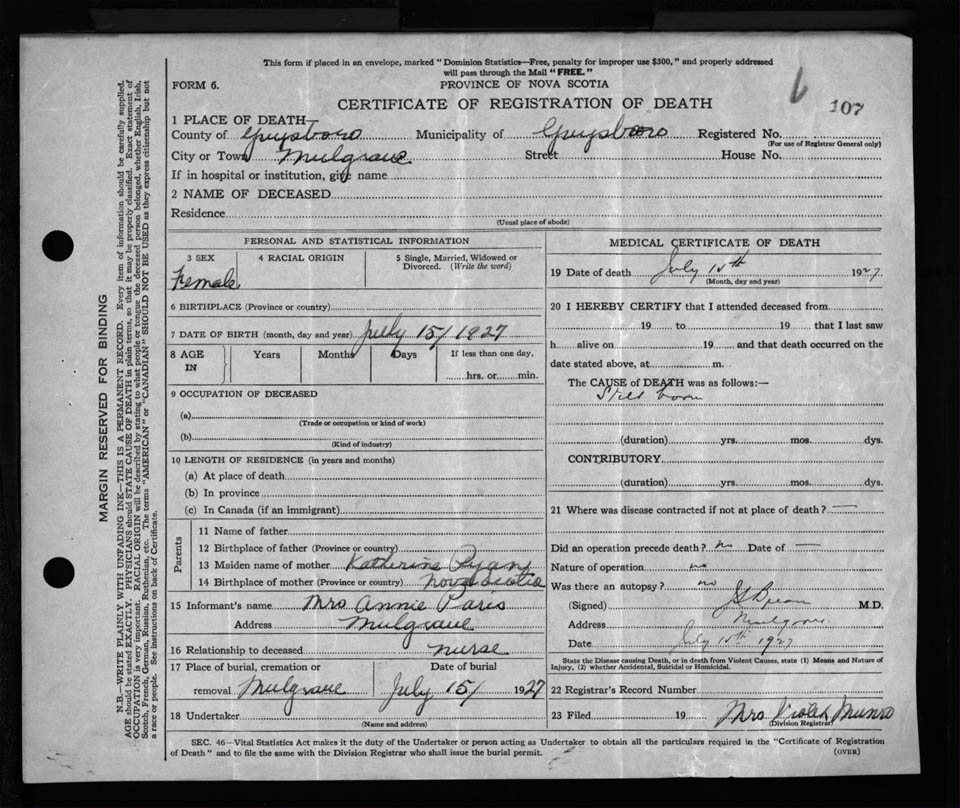 This form if placed in an envelope, marked "Dominion Statistics—Free, penalty for improper use $300," and properly addressed
will pass through the Mail "FREE."
FORM 6.
PROVINCE OF NOVA SCOTIA
CERTIFICATE OF REGISTRATION OF DEATH
6
107
1 PLACE OF DEATH
County of Guysboro Municipality of Guysboro Registered No.
(For use of Registrar General only)
City or Town Mulgrave Street House No.
If in hospital or institution, give name
2 NAME OF DECEASED
Residence
(Usual place of abode)
PERSONAL AND STATISTICAL INFORMATION
3 SEX 4 RACIAL ORIGIN 5 Single, Married, Widowed or
Divorced. (Write the word)
Female
6 BIRTHPLACE (Province or country)
7 DATE OF BIRTH (month, day and year) July 15/1927
8 AGE Years Months Days If less than one day,
IN
hrs. or min.
9 OCCUPATION OF DECEASED
(a)
(Trade or occupation or kind of work)
(b)
(Kind of industry)
10 LENGTH OF RESIDENCE (in years and months)
(a) At place of death
(b) In province
(c) In Canada (if an immigrant)
Parents
11 Name of father
12 Birthplace of father (Province or country)
13 Maiden name of mother Katherine Ryan
14 Birthplace of mother (Province or country) Nova Scotia
15 Informant's name Mrs Annie Paris
Address Mulgrave
16 Relationship to deceased nurse
17 Place of burial, cremation or Date of burial
removal Mulgrave July 15/ 1927
18 Undertaker
(Name and address)
MEDICAL CERTIFICATE OF DEATH
19 Date of death July 15th 1927
(Month, day and year)
20 I HEREBY CERTIFY that I attended deceased from
19 to 19 that I last saw
h alive on 19 and that death occurred on the
date stated above, at m.
The CAUSE of DEATH was as follows:—
Still born
(duration) yrs. mos. dys.
CONTRIBUTORY
(duration) yrs. mos. dys.
21 Where was disease contracted if not at place of death? —
Did an operation precede death? no Date of —
Nature of operation no
Was there an autopsy? no
(Signed) M.D.
Address Mulgrave
Date July 15th 1927
State the Disease causing Death, or in death from Violent Causes, state (1) Means and Nature of
Injury, (2) whether Accidental, Suicidal or Homicidal.
22 Registrar's Record Number
23 Filed 19 Mrs Violet Munro
(Division Registrar)
SEC. 46—Vital Statistics Act makes it the duty of the Undertaker or person acting as Undertaker to obtain all the particulars required in the "Certificate of Registration
of Death" and to file the same with the Division Registrar who shall issue the burial permit.
(OVER)
MARGIN RESERVED FOR BINDING
N.B.—WRITE PLAINLY WITH UNFADING INK—THIS IS A PERMANENT RECORD. Every item of information should be carefully supplied.
AGE should be stated EXACTLY. PHYSICIANS should STATE CAUSE OF DEATH in plain terms, so that it may be properly classified. Exact statement of
OCCUPATION is very important. RACIAL ORIGIN will be described by stating to what people or tongue the deceased person belonged, whether English, Irish,
Scotch, French, German, Russian, Ruthenian, etc. The terms "AMERICAN" or "CANADIAN" SHOULD NOT BE USED as they express citizenship but not
a race or people. See instructions on back of Certificate.